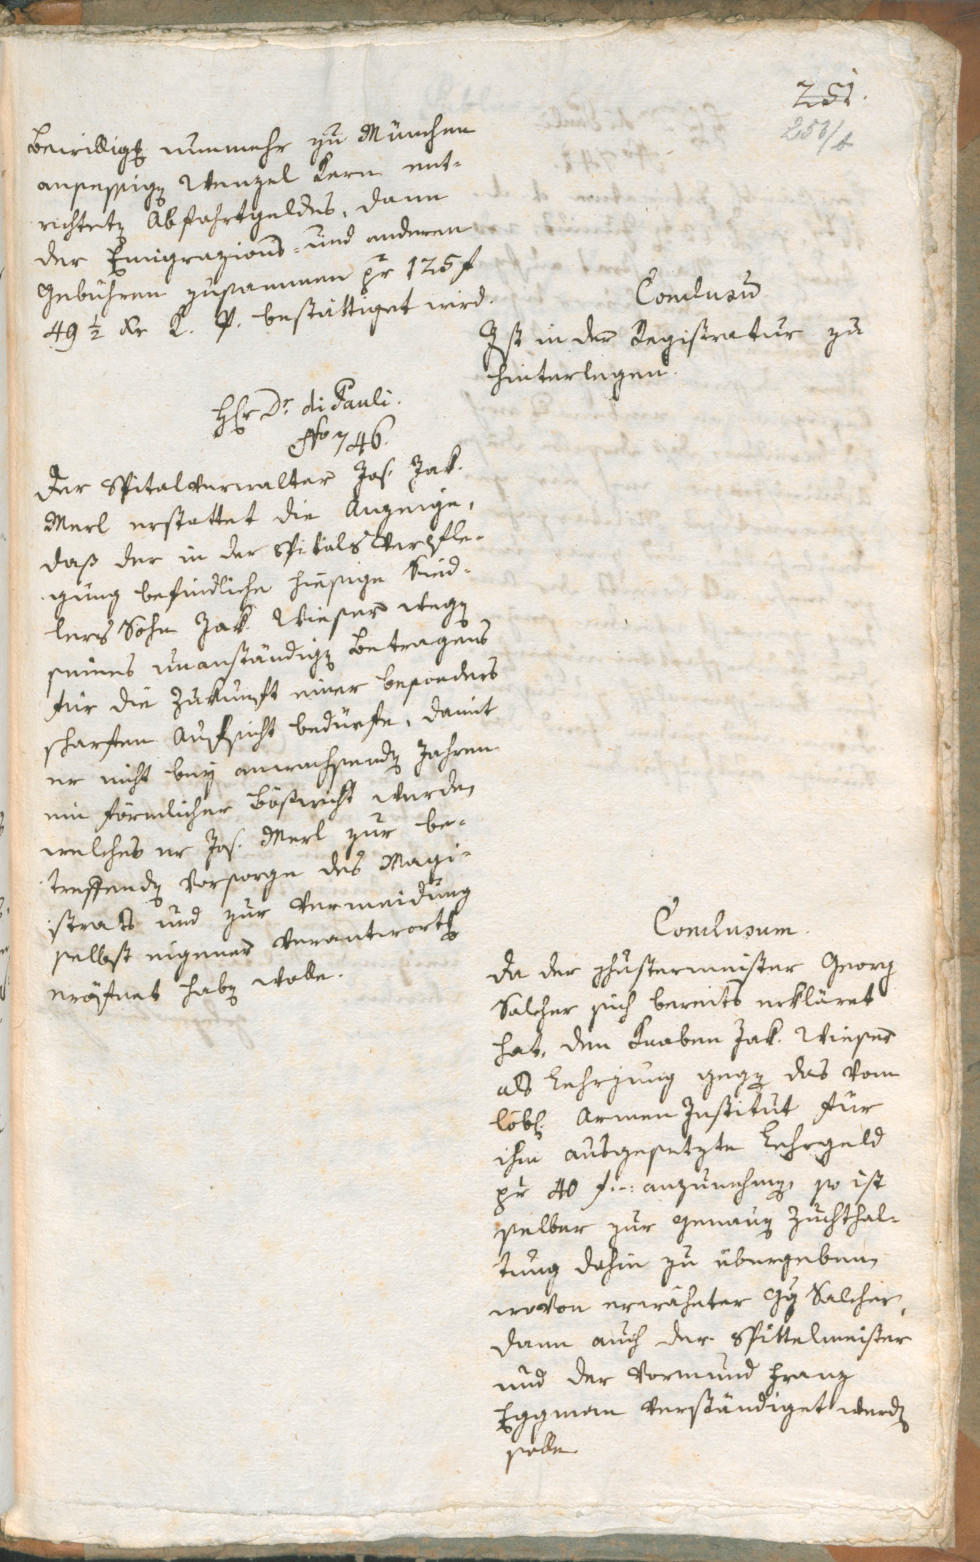 251.
250/b
Bewilligg nunmehr zu München
ansessigg Wenzel Kern ent-
richtetg Abfahrtgeldes, dann
der Emigrazions- und anderen
Gebühren zusammen pr 125 f
49 ½ kr bestättiget wird.
Conclusum
Ist in der Registratur zu
hinterlegen.
Hr Dr. di Pauli.
No 746.
Der Spitalverwalter Jos. Jak.
Merl erstattet die Anzeige,
daß der in der Spitals Verpfle-
gung befindliche hiesige Sied-
lers Sohn Jak. Wieser wegg
seines unanständigg Betragens
für die Zukunft einer besonders
scharfen Aufsicht bedürfe, damit
er nicht bey anwachsendg Jahren
ein förmlicher Böswicht werde,
welches er Jos. Merl zur be-
treffendg Vorsorge des Magi-
strats und zur Vermeidung
selbst eigener Verantwortg
eröfnet habg wolle.
Conclusum.
Da der Schustermeister Georg
Salcher sich bereits erkläret
hat, den Knaben Jak. Wieser
als Lehrjung gegg das vom
löbl. Armen Institut für
ihn ausgesetzte Lehrgeld
pr 40 f anzunehmg, so ist
selber zur genaug Zuchthal-
tung dahin zu übergeben,
wovon erwähnter Gg Salcher,
dann auch der Spittelmeister
und der Vormund Franz
Eggman verständiget werdg
solle